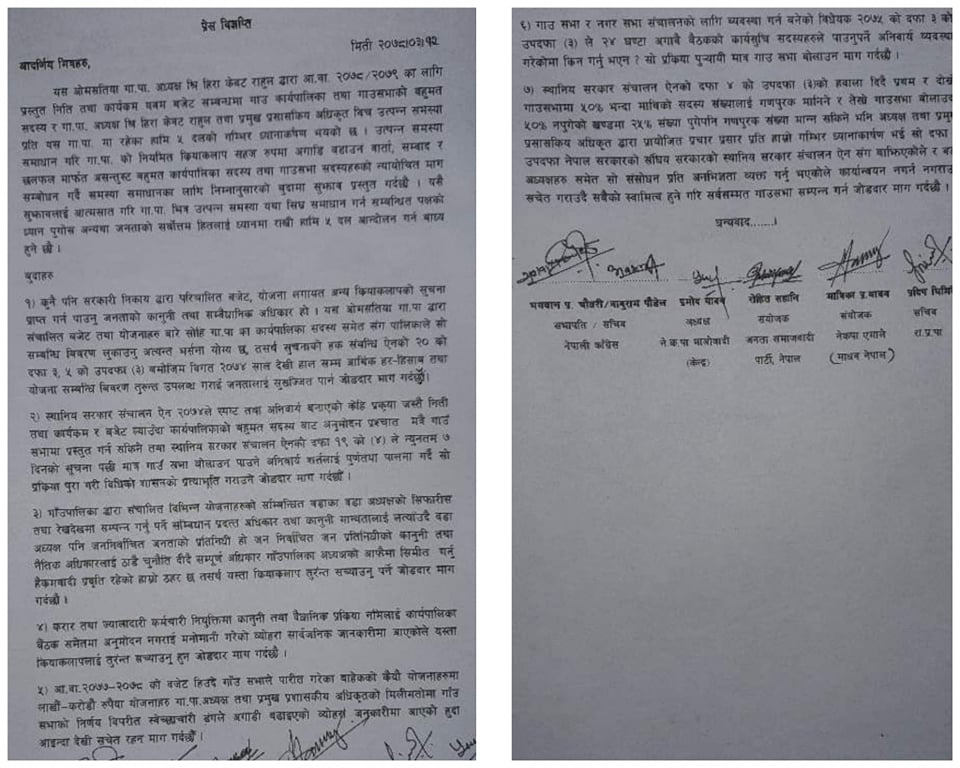 प्रेस विज्ञप्ति
मिती २०७८/०३/१२
आदर्णिय मित्रहरु,
यस ओमसतिया गा.पा. अध्यक्ष श्रि हिरा केवट राहुल द्वारा आ.वा. २०७८/२०७९ का लागि
प्रस्तुत निति तथा कार्यकम यवम बजेट सम्बन्धमा गाउ कार्यपालिका तथा गाउसभाको बहुमत
सदस्य र गा.पा. अध्यक्ष श्रि हिरा केवट राहुल तथा प्रमुख प्रसासकिय अधिकृत बिच उत्पन्न समस्या
प्रति यस गा.पा. मा रहेका हामि ५ दलको गम्भिर ध्यानार्कषण भयको छ । उत्पन्न समस्या
समाधान गरि गा.पा. को नियमित कियाकलाप सहज रुपमा अगाडि बढाउन वार्ता, सम्बाद र
छलफल मार्फत असन्तुस्ट बहुमत कार्यपालिका सदस्य तथा गाउसभा सदस्यहरुको न्यायोचित माग
सम्बोधन गर्दै समस्या समाधानका लागि निम्नानुसारको बुदामा सुझाव प्रस्तुत गर्दछौ । यसै
सुझावलाई आत्मसात गरि गा.पा. भित्र उत्पन्न समस्या यथा सिघ्र समाधान गर्न सम्बन्धित पक्षको
ध्यान पुगोस अन्यथा जनताको सर्वोत्तम हितलाई ध्यानमा राखी हामि ५ दल आन्दोलन गर्न बाध्य
हुने छौ ।
बुदाहरु
१) कुनै पनि सरकारी निकाय द्वारा परिचालित बजेट, योजना लगायत अन्य कियाकलापको सुचना
प्राप्त गर्न पाउनु जनताको कानुनी तथा सम्वैधानिक अधिकार हो । यस ओमसतिया गा.पा द्वारा
संचालित बजेट तथा योजनाहरु बारे सोहि गा.पा का कार्यपालिका सदस्य समेत संग पालिकाले सो
सम्बन्धि बिबरण लुकाउनु अत्यन्त भर्सना योग्य छ, तसर्थ सुचनाको हक संबन्धि ऐनको २० को
दफा ३, ५ को उपदफा (३) बमोजिम बिगत २०७४ साल देखी हाल सम्म आर्थिक हर-हिसाब तथा
योजना सम्बन्धि बिबरण तुरुन्त उपलब्ध गराई जनतालाई सुसज्जित पार्न जोडदार माग गर्दछौ।
२) स्थानिय सरकार संचालन ऐन २०७४ले स्पष्ट तथा अनिवार्य बनाएको केहि प्रकृया जस्तै निती
तथा कार्यकम र बजेट ल्याउँदा कार्यपालिकाको बहुमत सदस्य बाट अनुमोदन प्रश्चात मात्रै गाउँ
सभामा प्रस्तुत गर्न सकिने तथा स्थानिय सरकार संचालन ऐनको दफा १९ को (४) ले न्युनतम ७
दिनको सुचना पछी मात्र गाउँ सभा बोलाउन पाउने अनिवार्य शर्तलाई पुर्णतया पालना गर्दै सो
प्रकिया पुरा गरी बिधिको शासनको प्रत्याभुति गराउने जोडदार माग गर्दछौँ ।
३) गाँउपालिका द्वारा संचालित बिभिन्न योजनाहरुको सम्बिन्धित वडाका वडा अध्यक्षको सिफारीस
तथा रेखदेखमा सम्पन्न गर्नु पर्ने संम्बिधान प्रदत्त अधिकार तथा कानुनी मान्यतालाई लत्याउँदै वडा
अध्यक्ष पनि जननिर्वाचित जनताको प्रतिनिधी हो जन निर्वाचित जन प्रतिनिधीको कानुनी तथा
नैतिक अधिकारलाई ठाडै चुनौति दीदै सम्पूर्ण अधिकार गाँउपालिका अध्यक्षको आफैमा सिमीत गर्नु
हैकमवादी प्रबृति रहेको हाम्रो ठहर छ तसर्थ यस्ता कियाकलाप तुरंन्त सच्याउनु पर्ने जोडदार माग
गर्दछौ ।
४) करार तथा ज्यालादारी कर्मचारी नियुक्तिमा कानुनी तथा वैधानिक प्रकिया नमिलाई कार्यपालिका
बैठक समेतमा अनुमोदन नगराई मनोमानी गरेको व्योहरा सार्वजनिक जानकारीमा आएकोले यस्ता
कियाकलापलाई तुरंन्त सच्याउनु हुन जोडदार माग गर्दछौ ।
५) आ.वा.२०७७-२०७८ को बजेट हिउदै गाँउ सभाले पारीत गरेका बाहेकको कैयौ योजनाहरुमा
लाखौं-करोडौ रुपैया योजनाहरु गा.पा.अध्यक्ष तथा प्रमुख प्रशासकीय अधिकृतको मिलीमतोमा गाँउ
सभाको निर्णय बिपरीत स्वेच्छाचारी ढंगले अगाडी बढाइएको व्योहरा जनुकारीमा आएको हुदा
आइन्दा देखी सचेत रहन माग गर्दछौं ।
६) गाउ सभा र नगर सभा संचालनको लागि ब्यवस्था गर्न बनेको बिधेयक २०७५ को दफा ३ को
उपदफा (३) ले २४ घण्टा अगावै बैठकको कार्यसुचि सदस्यहरुले पाउनुपर्ने अनिवार्य ब्यवस्था
गरेकोमा किन गर्नु भएन ? सो प्रकिया पुर्‍यायी मात्र गाउ सभा बोलाउन माग गर्दछौ ।
७) स्थानिय सरकार संचालन ऐनको दफा ४ को उपदफा (३)को हवाला दिदै प्रथम र दोस्रो
गाउसभामा ५०% भन्दा माथिको सदस्य संख्यालाई गणपुरक मानिने र तेस्रे गाउसभा बोलाउदा
५०% नपुगेको खण्डमा २५% संख्या पुगेपनि गणपुरक संख्या भान्न सकिने भनि अध्यक्ष तथा प्रमुख
प्रसासकिय अधिकृत द्वारा प्रायोजित प्रचार प्रसार प्रति हाम्रो गम्भिर ध्यानाकार्षण भई सो दफा
उपदफा नेपाल सरकारको संघिय सरकारको स्थानिय सरकार संचालन ऐन संग बाझिएकोले र वडा
अध्यक्षहरु समेत सो संसोधन प्रति अनभिज्ञता ब्यक्त गर्नु भएकोले कार्यान्वयन नगर्न नगराउन
सचेत गराउदै सबैको स्वामित्व हुने गरि सर्वसम्मत गाउसभा सम्पन्न गर्न जोडदार माग गर्दछौ ।
धन्यवाद.......।
भगवान प्र. चौधरी/बाबुराम पौडेल प्रमोद यादव रोहित सहानि मात्रिका प्र.यादव प्रदिप घिमि
सभापति / सचिब अध्यक्ष संयोजक संयोजक सचिब
नेपाली काँग्रेस ने.क.पा माओवादी जनता समाजवादी नेकपा एमाले रा.प्र.पा
(केन्द्र) पार्टी, नेपाल (माधव नेपाल)